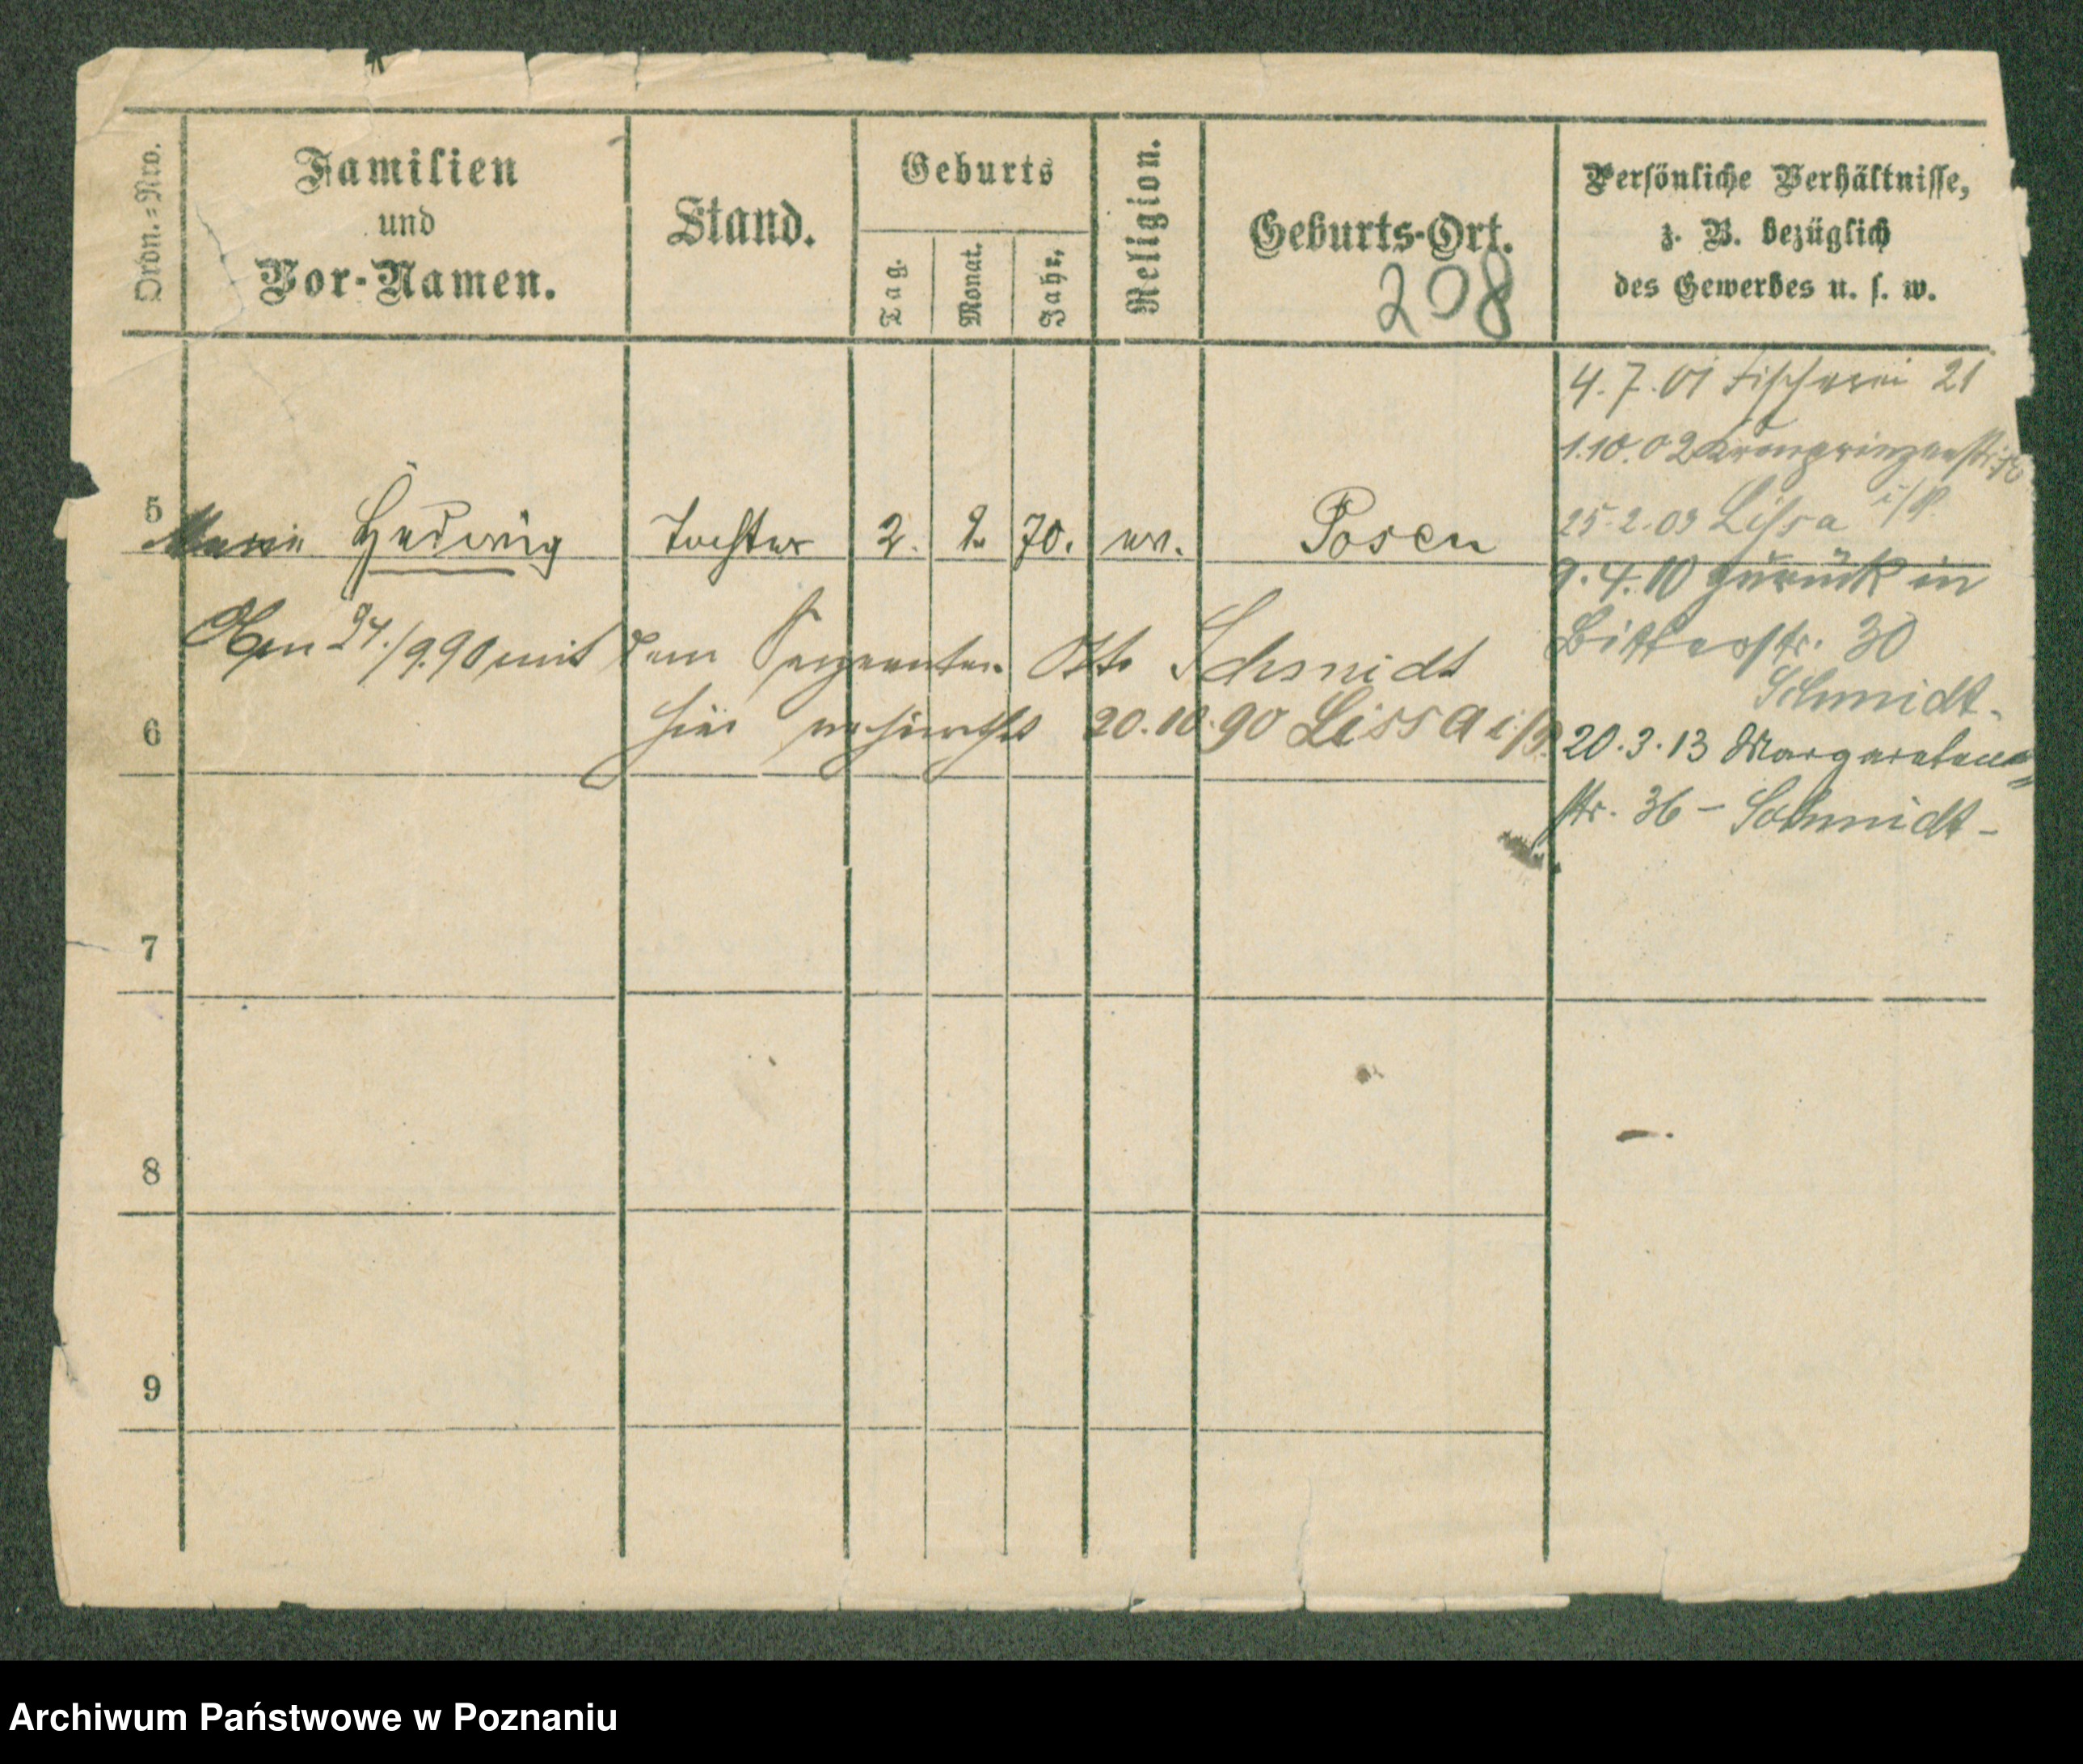 Ordn.-Nro.
Familien
und
Vor-Namen.
Stand.
Geburts
Tag.
Monat.
Jahr.
Religion.
Geburts-Ort.
208
Persönliche Verhältnisse,
z. B. bezüglich
des Gewerbes u. s. w.
4.7.01 Fischerei 21
1.10.02 Kronprinzenstr.
25.2.03 Lissa i/P
5 Marie Hedwig Tochter 2. 2. 70. ev. Posen
9.4.10 zurück in
Bitterstr. 30
Schmidt.
Am 24./9.90 mit dem Sergeanten Otto Schmidt
hier verheirathet 20.10.90 Lissa i/P.
6
20.3.13 Margareten
str. 36 – Schmidt –
7
8
9
Archiwum Państwowe w Poznaniu